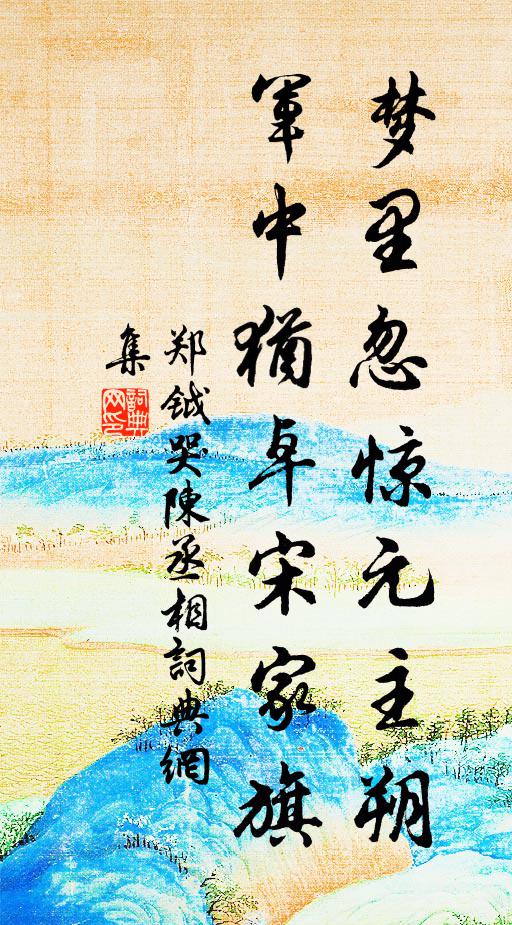 梦里忽惊元主朔
军中犹卓宋家旗
郑钺哭陳丞相詞典網
集
詞典
网印